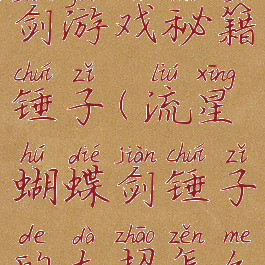 剑游戏秘籍
chuí zǐ liú xīng
锤子(流星
hú dié jiàn chuí zǐ
蝴蝶剑锤子
de dà zhāo zěn me
的大招怎么